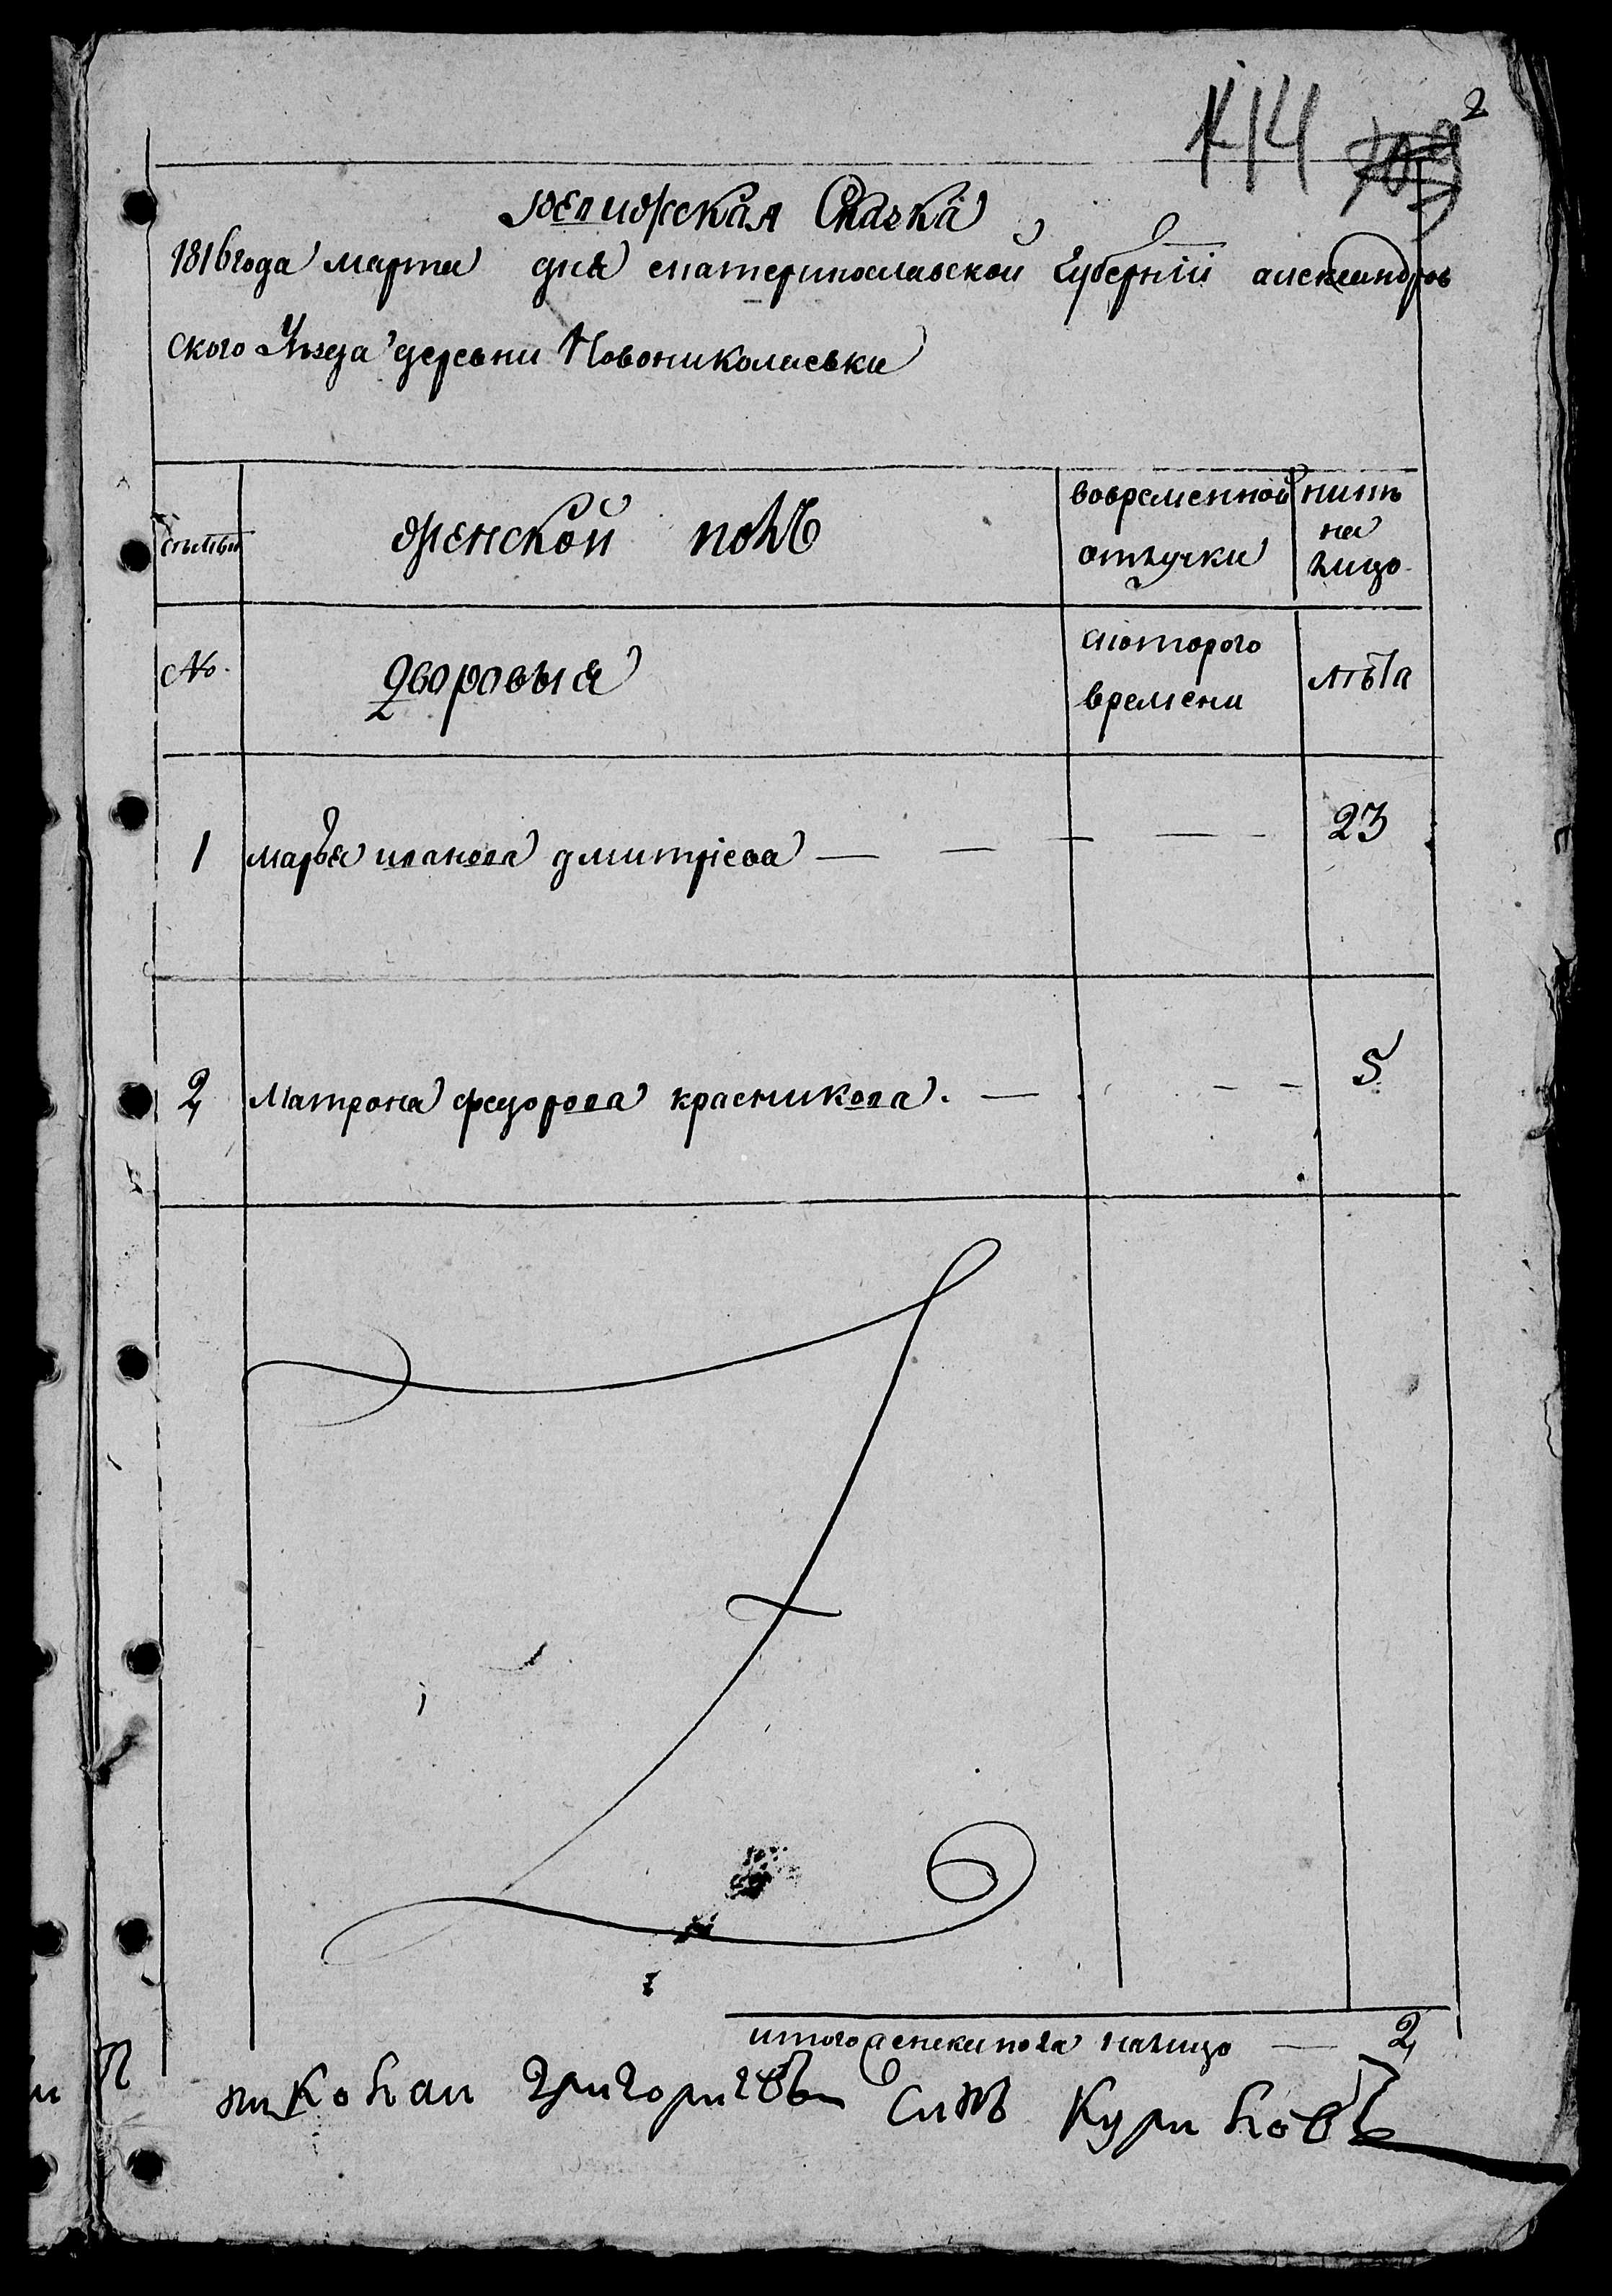 2
414
Ревижская Сказка
1816 года марта дня екатеринославской Губернiи александров
ского Уѣзда деревни Новониколаевки
женской полъ
вовременной
отлучки
нынѣ
на
лицо
№
Дворовыя
скоторого
времени
лѣта
1 марья иванова дмитрiева — — — — 23
2 Матрона федорова красникова. — — — 5
итого женска пола налицо — 2
николаи григоричъ синъ Куликовъ